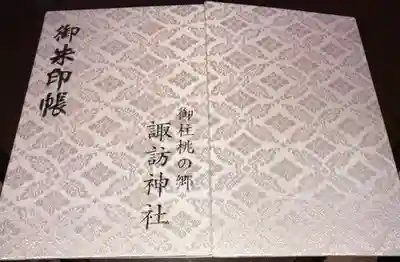 御朱印帳
御柱桃の郷
諏訪神社